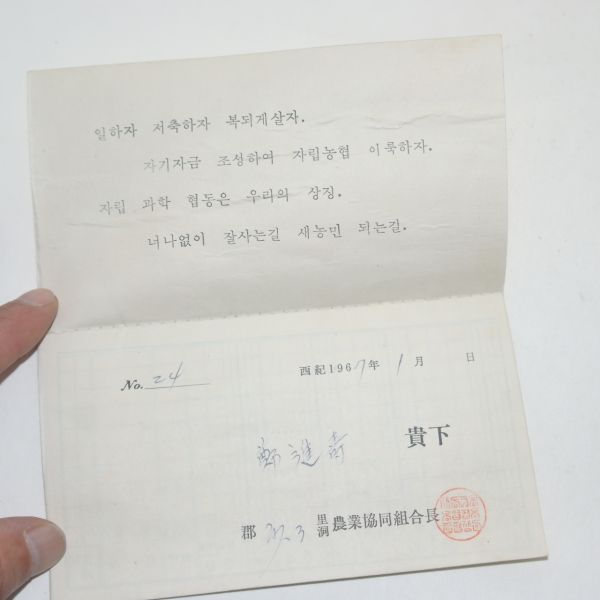 일하자 저축하자 복되게살자.
자기자금 조성하여 자립농협 이룩하자.
자립 과학 협동은 우리의 상징.
너나없이 잘사는길 새농민 되는길.
No. 24
西紀1967年 1月 日
鄭 壽 貴下
郡 里洞 農業協同組合長